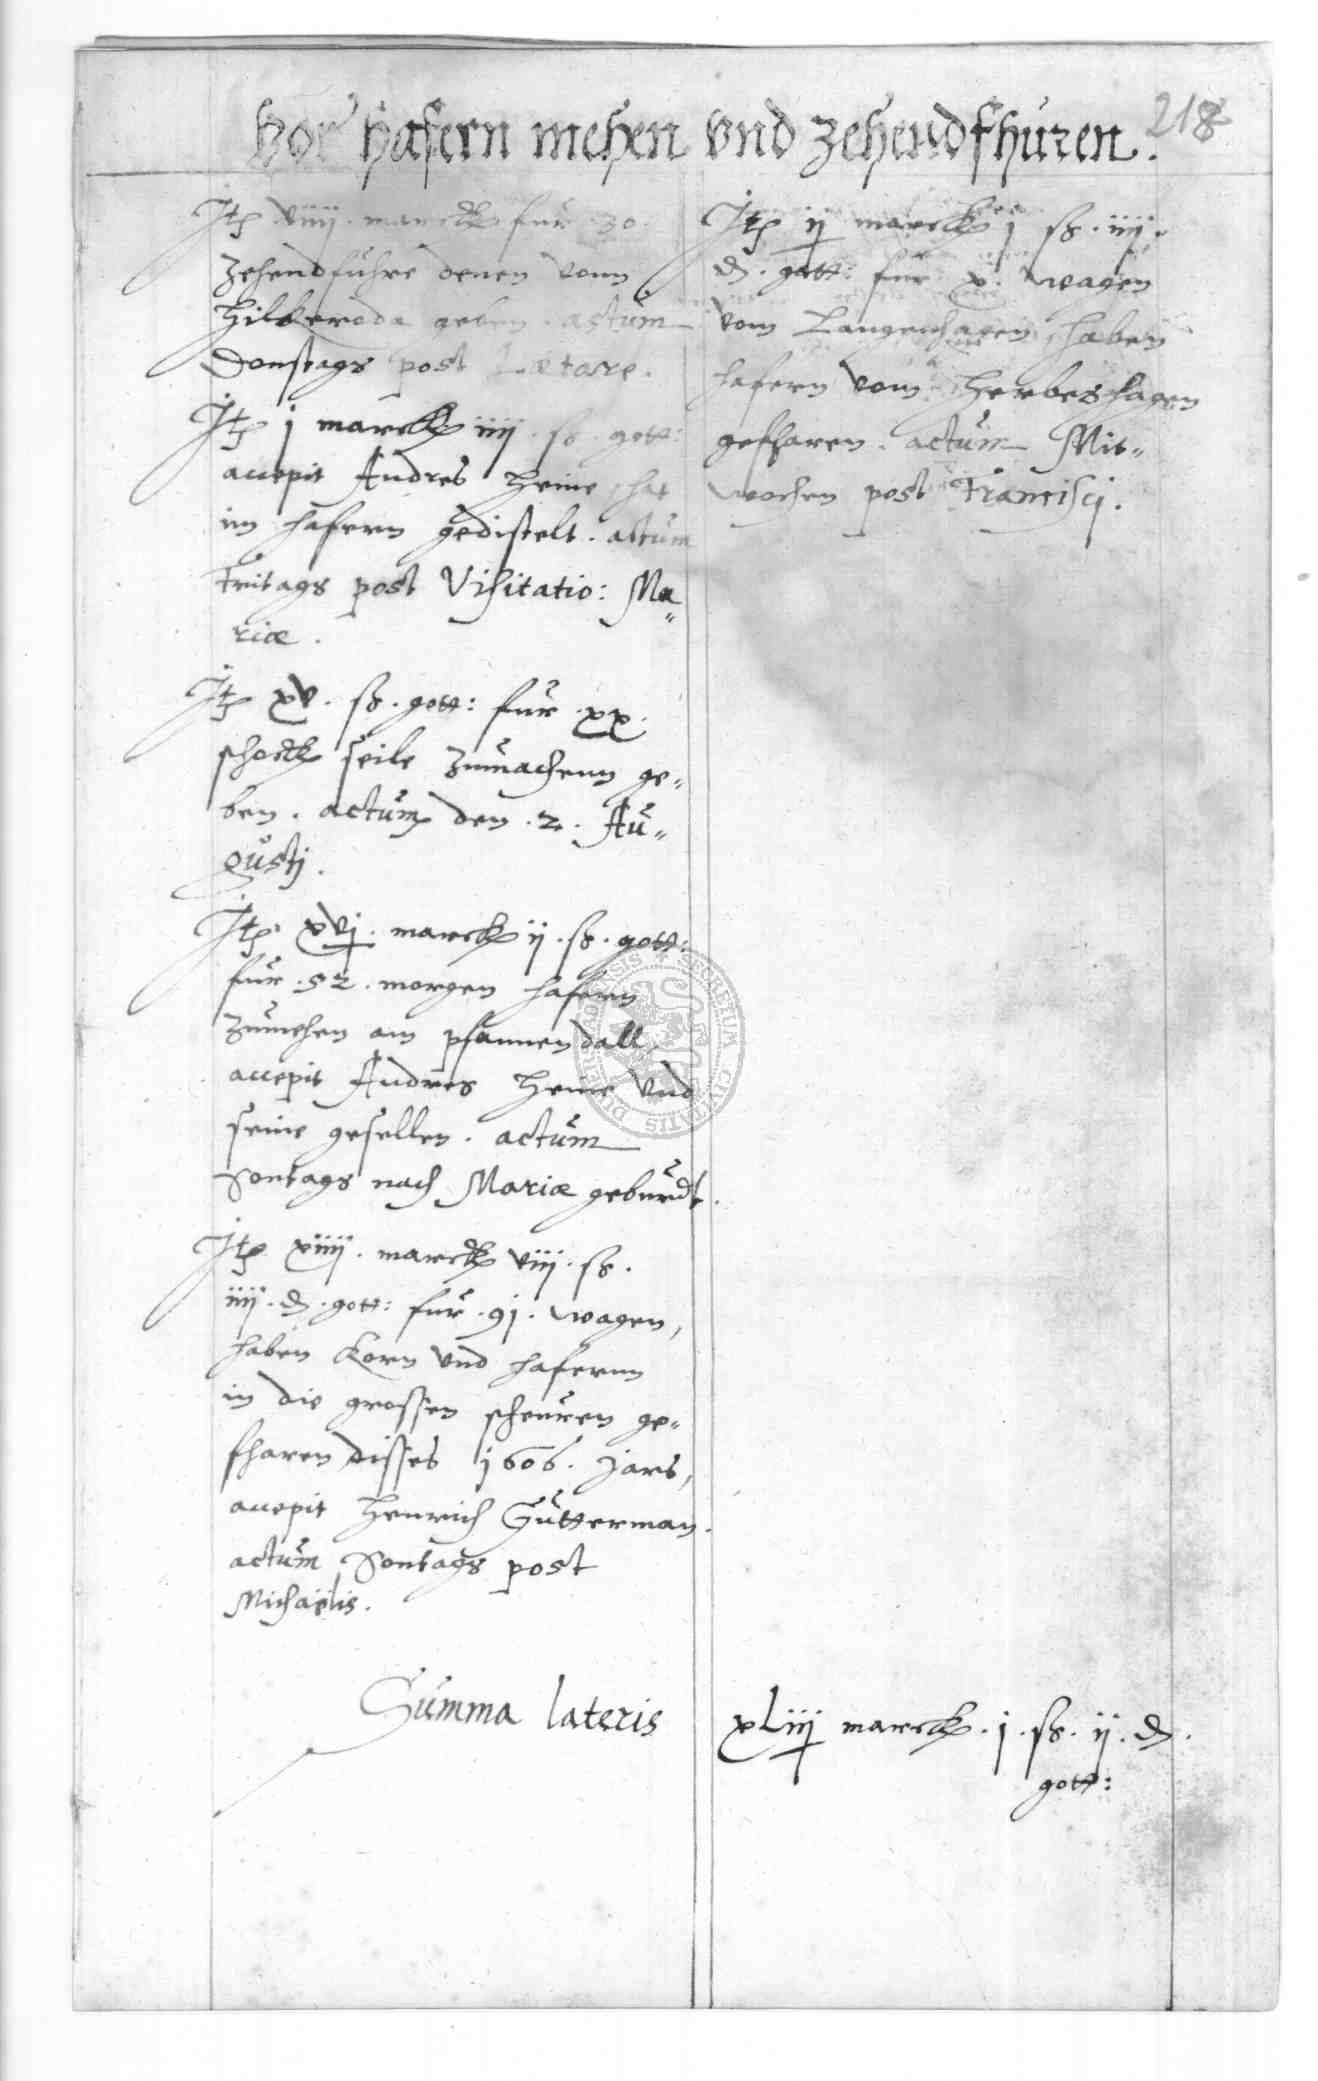 Vor hafern mehen vnd zehendfhuren.
218
Jtem viiij. marck fur 30.
Zehendfuhre denen vonn
Hilkeroda geben. actum
Donstags post Lætare.
Jtem j marck iiij. ß. gott:
accepit Andres Heine hat
im hafern gedistelt. actum
Freitags post Visitatio: Ma„
riæ.
Jtem xv. ß. gott: fur xx.
schock seile zumachenn ge„
ben. actum den .2. Au„
gustj.
Jtem xvj. marck ij. ß. gott:
fur .52. morgen hafern
Zumehen am pfannendall
accepit Andres Heine vnd
seine gesellen. actum
Sontags nach Mariæ geburdt.
Jtem xiiij. marck viij. ß.
iiij. d. gott: fur .91. wagen,
haben Korn vnd hafernn
in die grossen scheuren ge„
fharen disses 1606. Jars,
accepit Henrich Gutterman.
actum Sontags post
Michaëlis.
Jtem ij marck j ß. iiij.
d. gott: fur x. wagen
vom Langenhagen, haben
hafern vom Herbeshagen
gefharen. actum Mit„
wochen post Franciscj.
Summa lateris
xLiij marck. j. ß. ij. d.
gott:
SECRETUM CIVITATIS